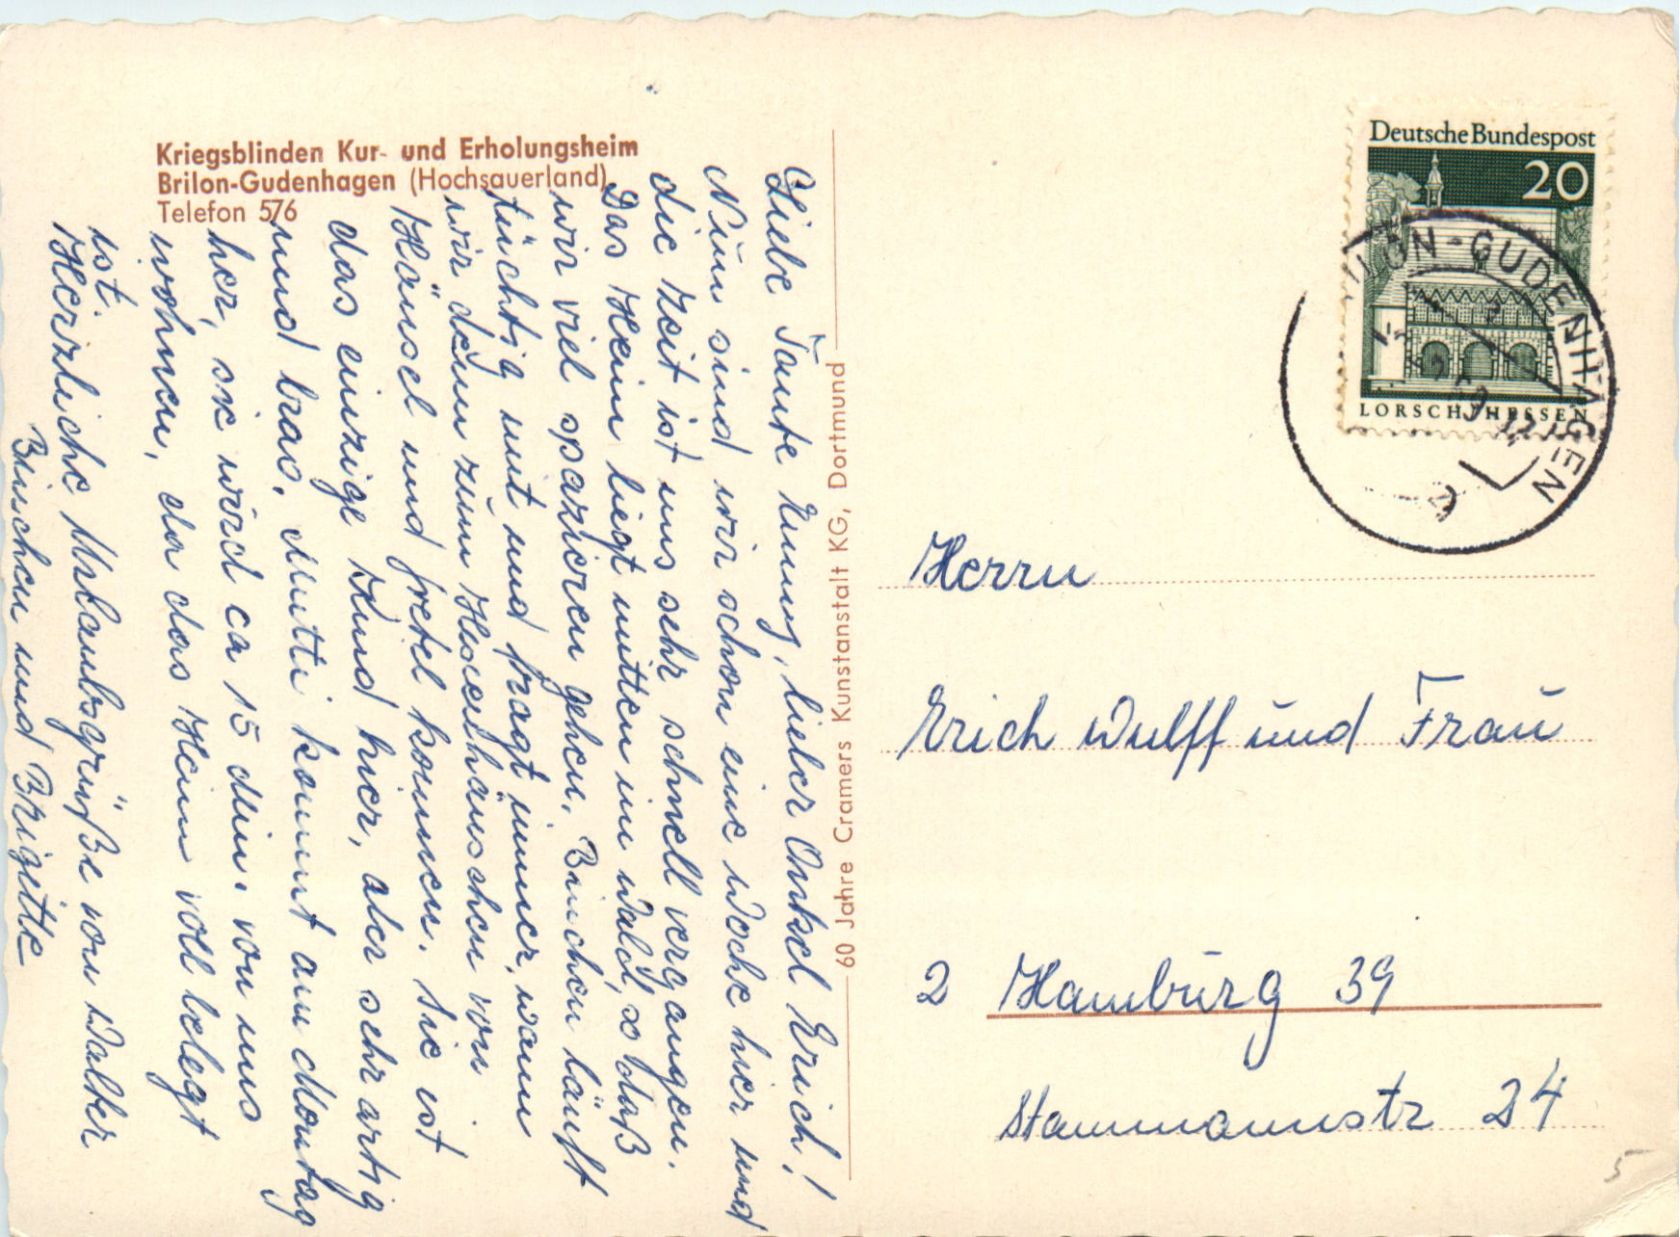 Kriegsblinden Kur- und Erholungsheim
Brilon-Gudenhagen (Hochsauerland)
Telefon 576
Liebe Tante Emmy, lieber Onkel Erich!
Nun sind wir schon eine Woche hier und
die Zeit ist uns sehr schnell vergangen.
Das Heim liegt mitten im Wald, so daß
wir viel spazieren gehen. Binchen läuft
tüchtig mit und fragt immer, wann
wir denn zum Hexenhäuschen von
Hänsel und Gretel kommen. Sie ist
das einzige Kind hier, aber sehr artig
und brav. Mutti kommt am Montag
her, sie wird ca 15 Min. von uns
wohnen, da das Heim voll belegt
ist.
Herzliche Urlaubsgrüße von Walter
Binchen und Brigitte
60 Jahre Cramers Kunstanstalt KG, Dortmund
Deutsche Bundespost
20
LORSCH/HESSEN
ILON-GUDENHAGEN
Herrn
Erich Wulff und Frau
2 Hamburg 39
Stammannstr 24
5